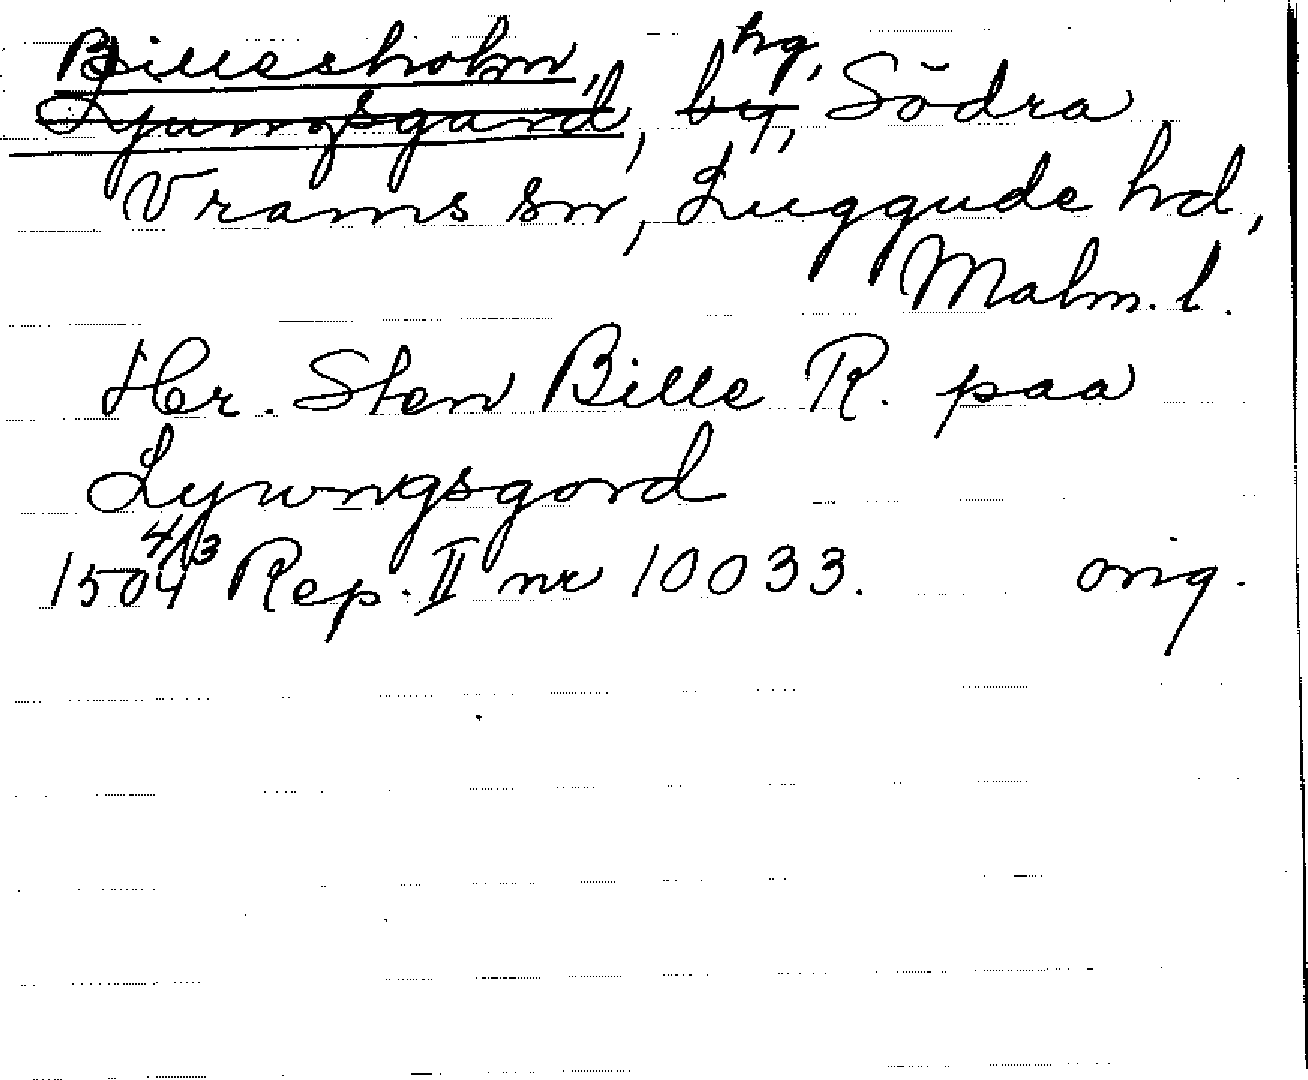 Billesholm, hg,
Ljungsgård, by, Södra
Vrams sn, Luggude hd,
Malm. l.
Her. Sten Bille R. paa
Lywngsgord
1504 4/13 Rep. II nr 10033. orig.